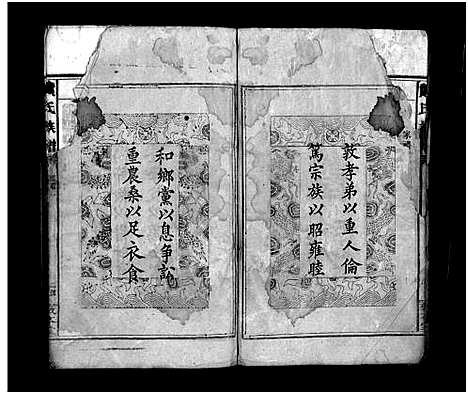 敦孝弟以重人倫
篤宗族以昭雍睦
和鄉黨以息爭訟
重農桑以足衣食
氏族譜